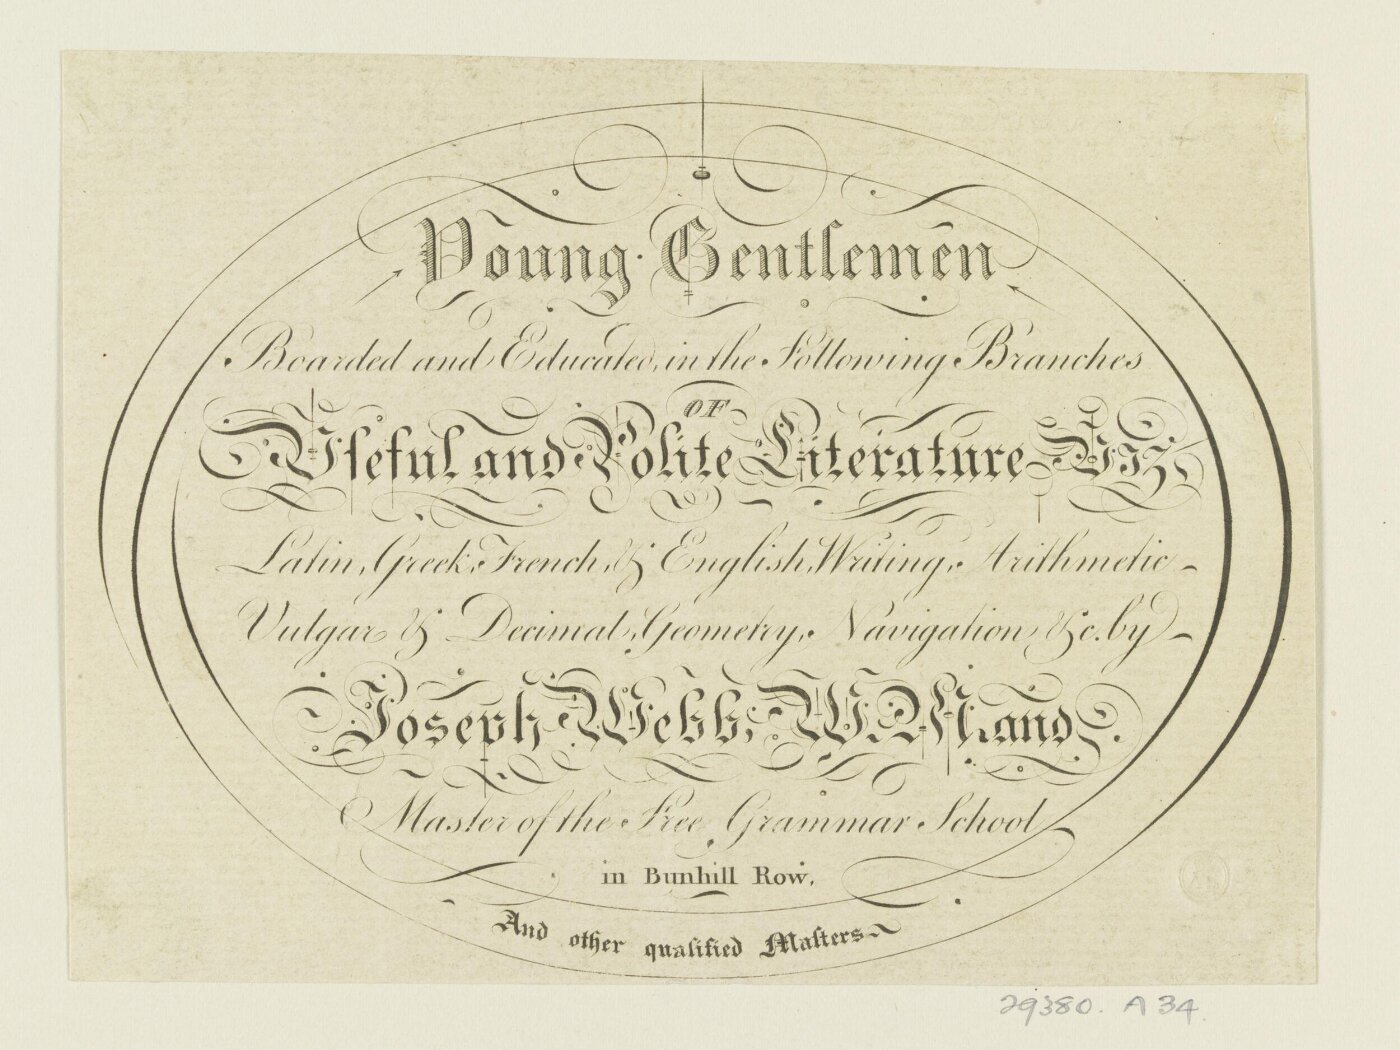 Young Gentlemen
Boarded and Educated, in the Following Branches
OF
Useful and Polite Literature Viz.
Latin, Greek, French, & English, Writing, Arithmetic
Vulgar & Decimal, Geometry, Navigation &c. by
Joseph Webb, W.M. and
Master of the Free Grammar School
in Bunhill Row,
And other qualified Masters
29380. A 34.